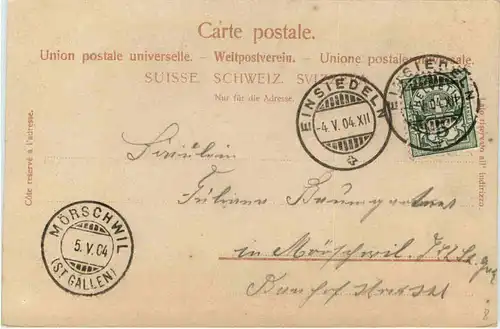 Carte postale.
Union postale universelle. – Weltpostverein. – Unione postale universale.
SUISSE. SCHWEIZ. SVIZZERA.
Nur für die Adresse.
EINSIEDELN
-4.V.04.XII
EINSIEDELN
V.04.XII
Côté réservé à l'adresse.
Lato riservato all' indirizzo.
Fräulein
Juliana Baumgartner
in Mörschwil
Bahnhof
MÖRSCHWIL
5.V.04
(ST. GALLEN)